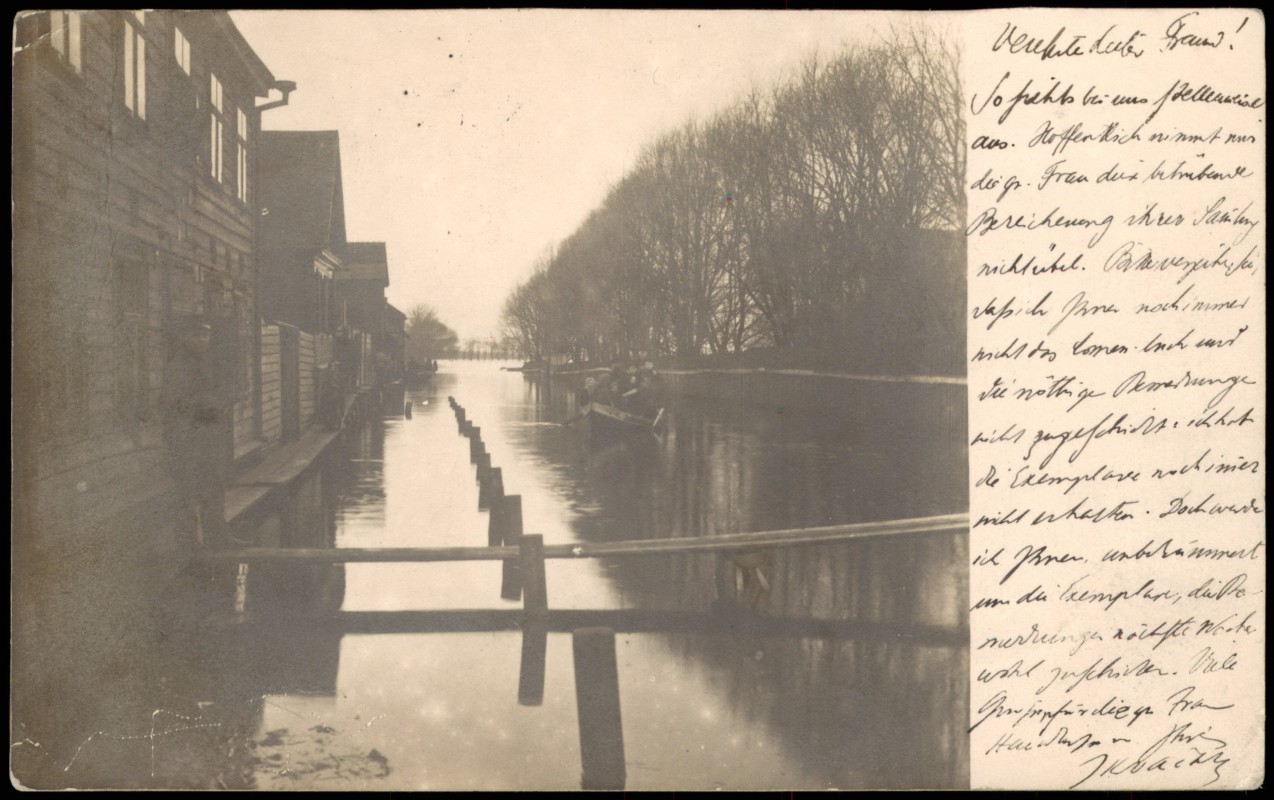 Verehrter lieber Freund!
So sieht's bei uns stellenweise
aus. Hoffentlich nimmt mir
die gn. Frau diese betrübende
Bereicherung ihrer Samlung
nicht übel. Bitte verzeihen Sie,
daß ich Ihnen noch immer
nicht das Lomen-buch und
die nöthige Bemerkungen
nicht zugeschickt: ich hab
die Exemplare noch immer
nicht erhalten. Doch werde
ich Ihnen, unbekümmert
um die Exemplare, die Be-
merkungen nächste Woche
wohl zuschicken. Viele
Grüsse für die gn Frau
Handkuss u Ihr